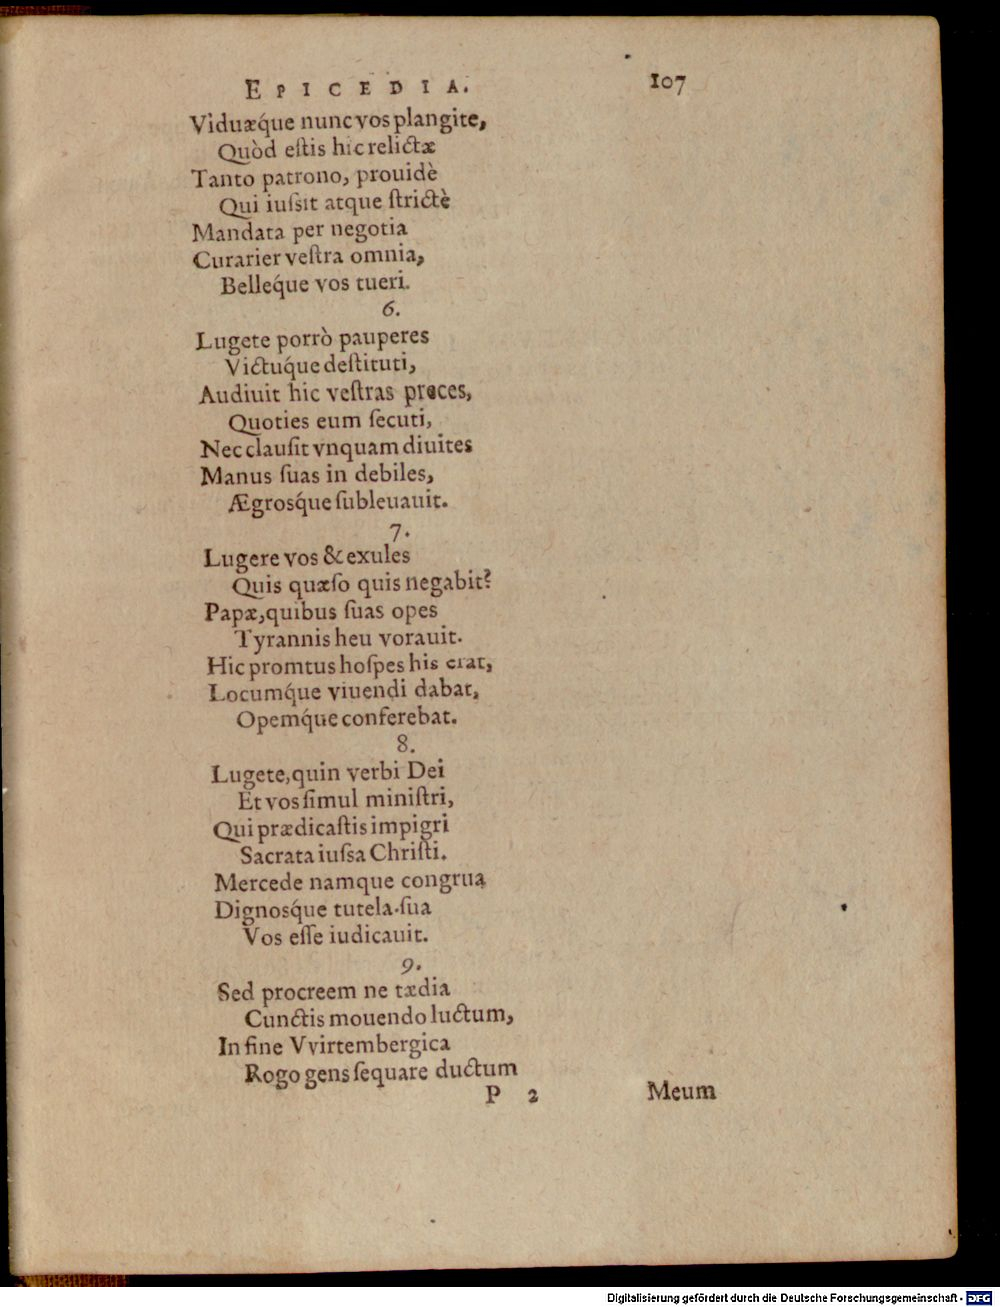 EPICEDIA. 107
Viduæq́ue nunc vos plangite,
Quòd eſtis hic relictæ
Tanto patrono, prouidè
Qui iuſsit atque ſtrictè
Mandata per negotia
Curarier veſtra omnia,
Belleq́ue vos tueri.
6.
Lugete porrò pauperes
Victuq́ue deſtituti,
Audiuit hic veſtras preces,
Quoties eum ſecuti,
Nec clauſit vnquam diuites
Manus ſuas in debiles,
Ægrosq́ue ſubleuauit.
7.
Lugere vos & exules
Quis quæſo quis negabit?
Papæ, quibus ſuas opes
Tyrannis heu vorauit.
Hic promtus hoſpes his erat,
Locumq́ue viuendi dabat,
Opemq́ue conferebat.
8.
Lugete, quin verbi Dei
Et vos ſimul miniſtri,
Qui prædicaſtis impigri
Sacrata iuſsa Chriſti.
Mercede namque congrua
Dignosq́ue tutela ſua
Vos eſſe iudicauit.
9.
Sed procreem ne tædia
Cunctis mouendo luctum,
In fine Vvirtembergica
Rogo gens ſequare ductum
P 2 Meum
Digitalisierung gefördert durch die Deutsche Forschungsgemeinschaft - DFG